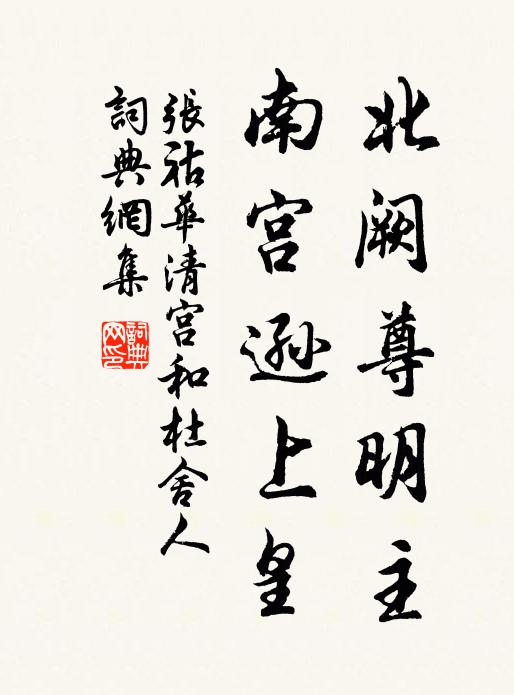 北阙尊明主
南宫逊上皇
張祜華清宫和杜舍人
詞典網集
詞典
网印